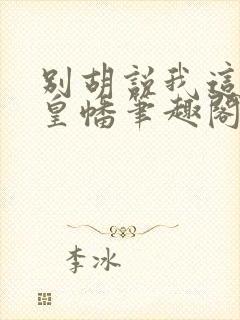 别胡説我這
皇幡筆趣閣
李冰